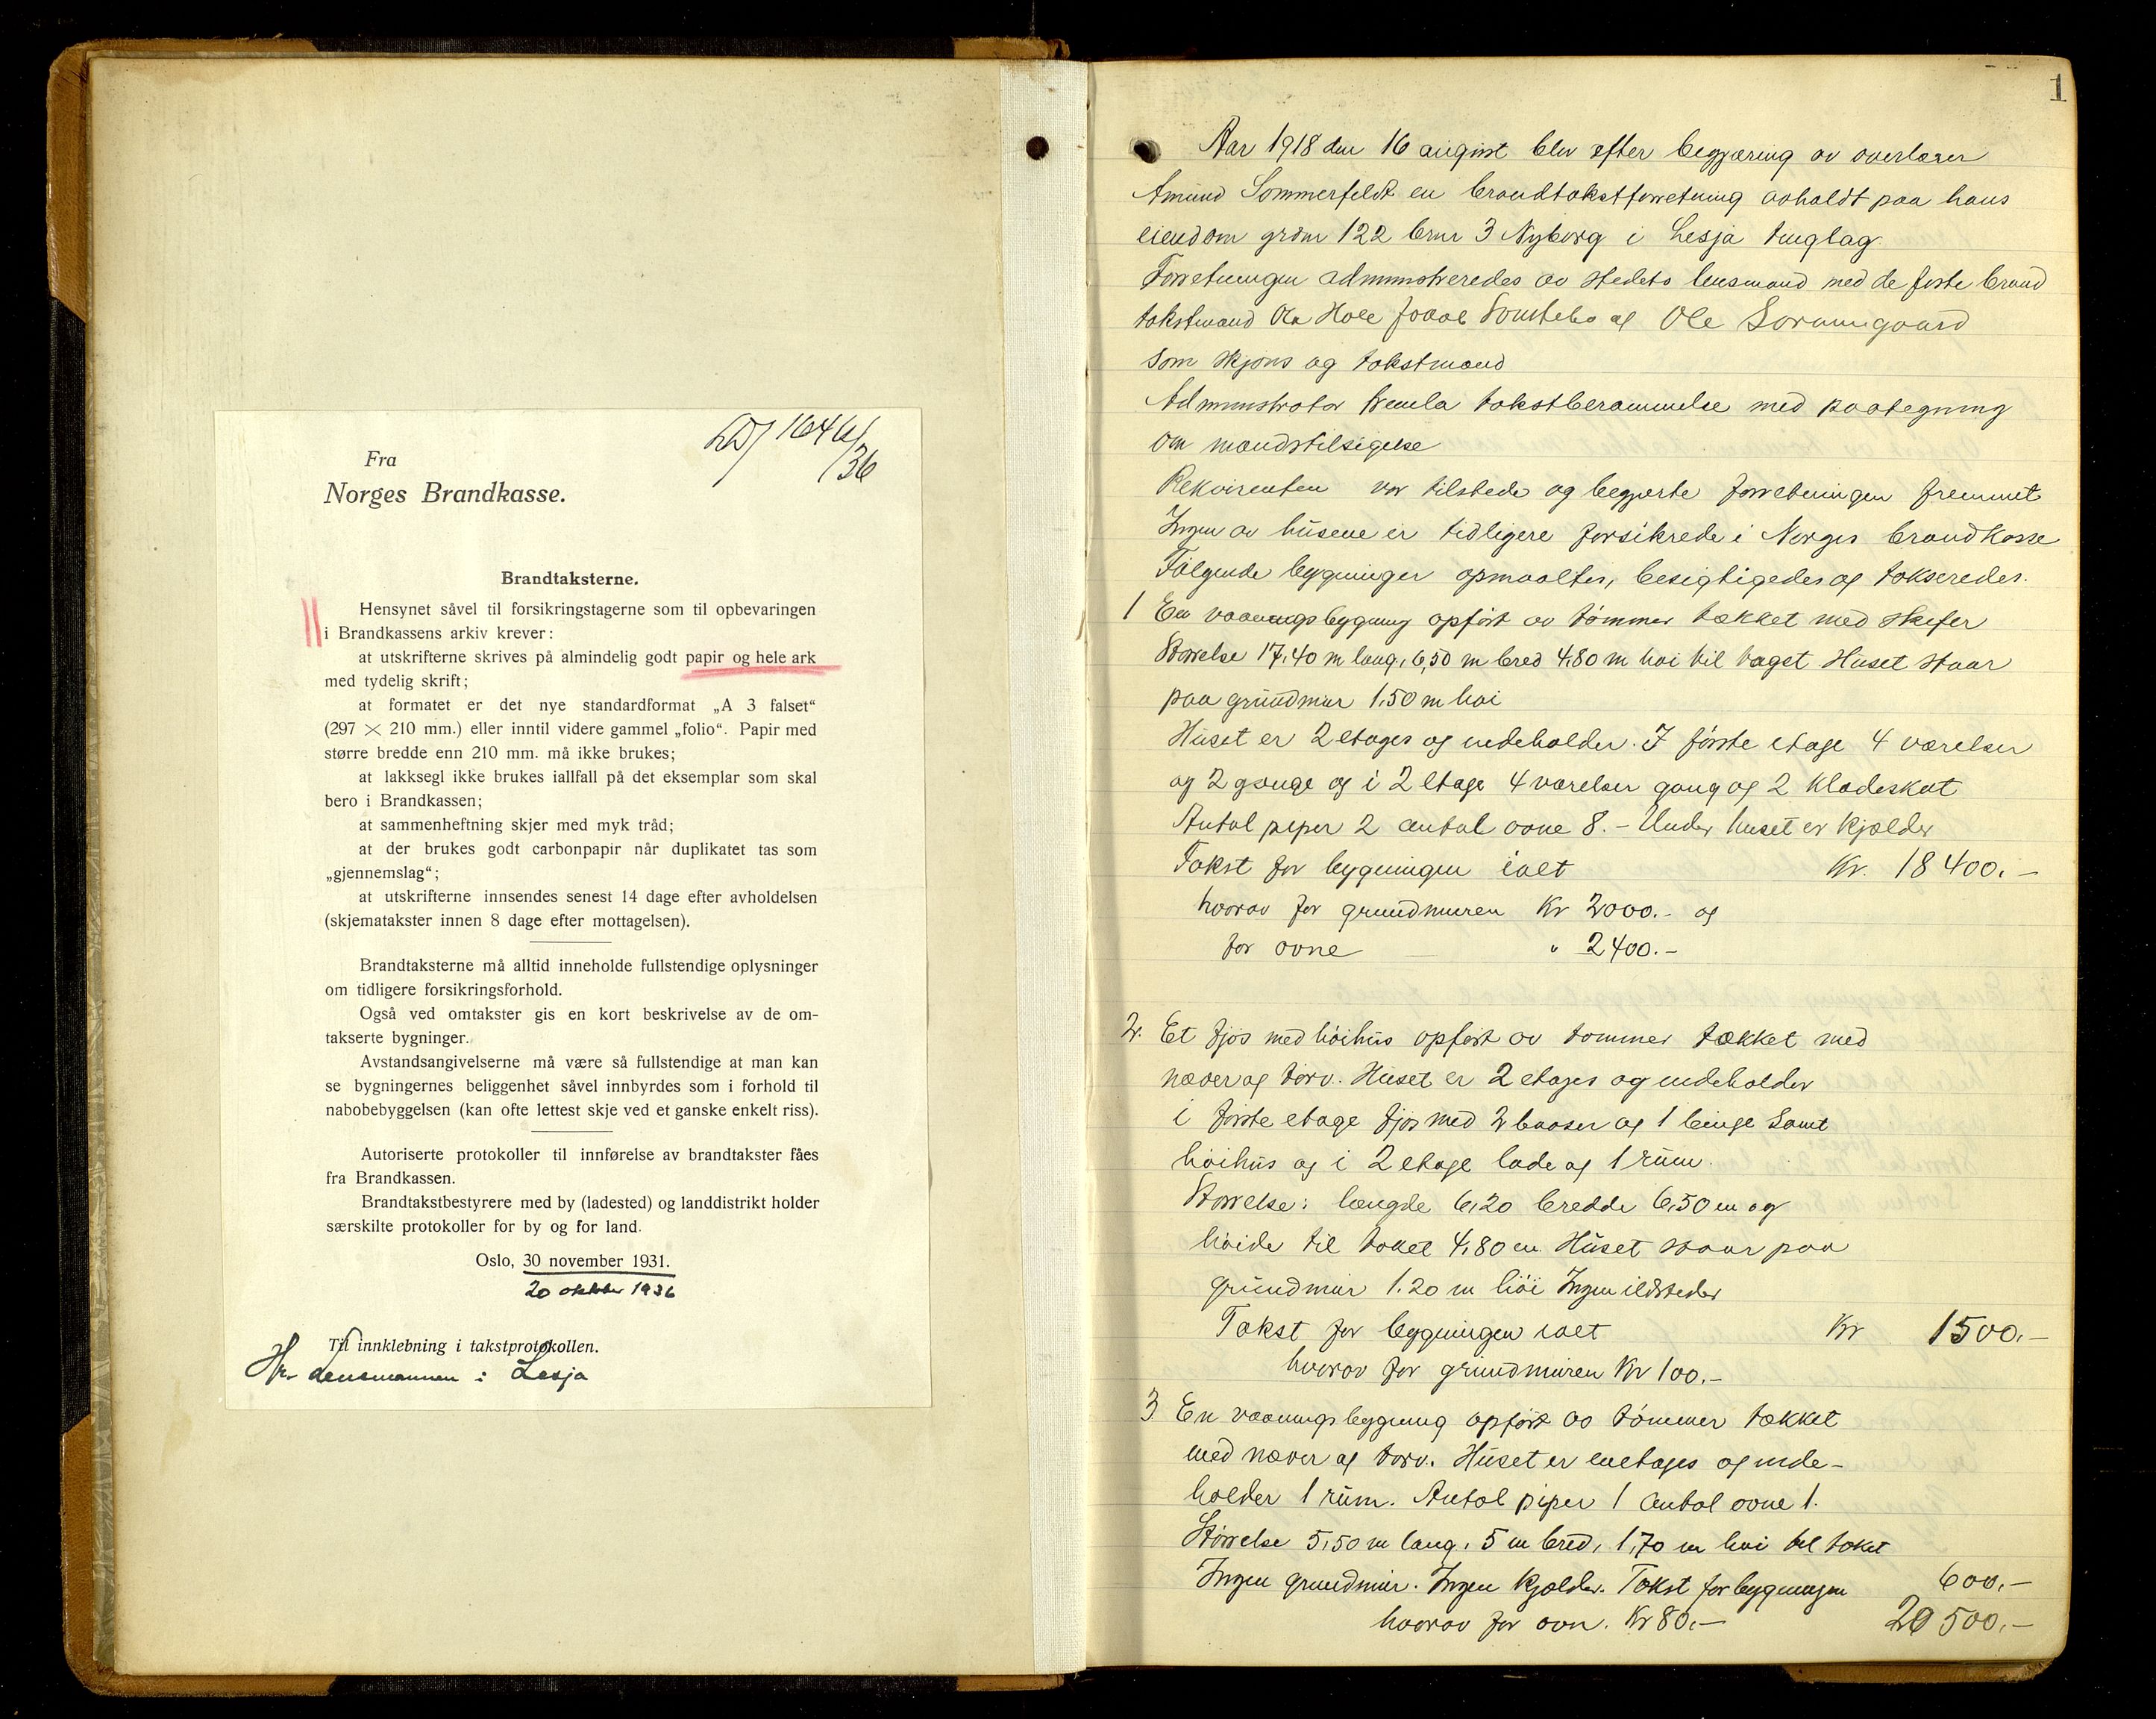 Fra
Norges Brandkasse.
1646/36
Brandtaksterne.
Hensynet såvel til forsikringstagerne som til opbevaringen
i Brandkassens arkiv krever:
at utskrifterne skrives på almindelig godt papir og hele ark
med tydelig skrift;
at formatet er det nye standardformat „A 3 falset“
(297 × 210 mm.) eller inntil videre gammel „folio“. Papir med
større bredde enn 210 mm. må ikke brukes;
at lakksegl ikke brukes iallfall på det eksemplar som skal
bero i Brandkassen;
at sammenheftning skjer med myk tråd;
at der brukes godt carbonpapir når duplikatet tas som
„gjennemslag“;
at utskrifterne innsendes senest 14 dage efter avholdelsen
(skjematakster innen 8 dage efter mottagelsen).
Brandtaksterne må alltid inneholde fullstendige oplysninger
om tidligere forsikringsforhold.
Også ved omtakster gis en kort beskrivelse av de om-
takserte bygninger.
Avstandsangivelserne må være så fullstendige at man kan
se bygningernes beliggenhet såvel innbyrdes som i forhold til
nabobebyggelsen (kan ofte lettest skje ved et ganske enkelt riss).
Autoriserte protokoller til innførelse av brandtakster fåes
fra Brandkassen.
Brandtakstbestyrere med by (ladested) og landdistrikt holder
særskilte protokoller for by og for land.
Oslo, 30 november 1931.
20 oktober 1936
Til innklebning i takstprotokollen.
Hr. Lensmannen i Lesja
1
Aar 1918 den 16 august blev efter begjæring av overlærer
Amund Sommerfeldt en brandtakstforretning avholdt paa hans
eiendom grdnr 122 brnr 3 Nyborg i Lesja tinglag
Forretningen administreredes av stedets lensmand med de faste brand
takstmænd Ola Hole og Ole
som skjøns og takstmænd
Administrator fremla takstberammelse med paategning
om mandstilsigelse
Rekvirenten var tilstede og begjærte forretningen fremmet
Ingen av husene er tidligere forsikrede i Norges brandkasse
Følgende bygninger opmaaltes, besigtigedes og takseredes.
1 En vaaningsbygning opført av tømmer tækket med skifer
Størrelse 17,40 m lang, 6,50 m bred 4,80 m høi til taget Huset staar
paa grundmur 1,50 m høi
Huset er 2 etages og indeholder. I første etage 4 værelser
og 2 gange og i 2 etage 4 værelser gang og 2 klædeskot
Antal piper 2 antal ovne 8. – Under huset er kjælder
Takst for bygningen ialt Kr. 18400.–
hvorav for grundmuren Kr 2000.– og
for ovne " 2400.–
2. Et fjøs med høihus opført av tømmer tækket med
næver og torv. Huset er 2 etages og indeholder
i første etage fjøs med 2 baaser og 1 binge samt
høihus og i 2 etage lade og 1 rum.
Størrelse: længde 6,20 bredde 6,50 m og
høide til taket 4,80 m Huset staar paa
grundmur 1.20 m høi Ingen ildsteder
Takst for bygningen ialt Kr 1500.–
hvorav for grundmuren Kr 100.–
3 En vaaningsbygning opført av tømmer tækket
med næver og torv. Huset er enetages og inde-
holder 1 rum. Antal piper 1 antal ovne 1.
Størrelse 5,50 m lang, 5 m bred, 1,70 m høi til taket
Ingen grundmur. Ingen kjælder. Takst for bygningen 600.–
hvorav for ovn. Kr 80.– 20500.–